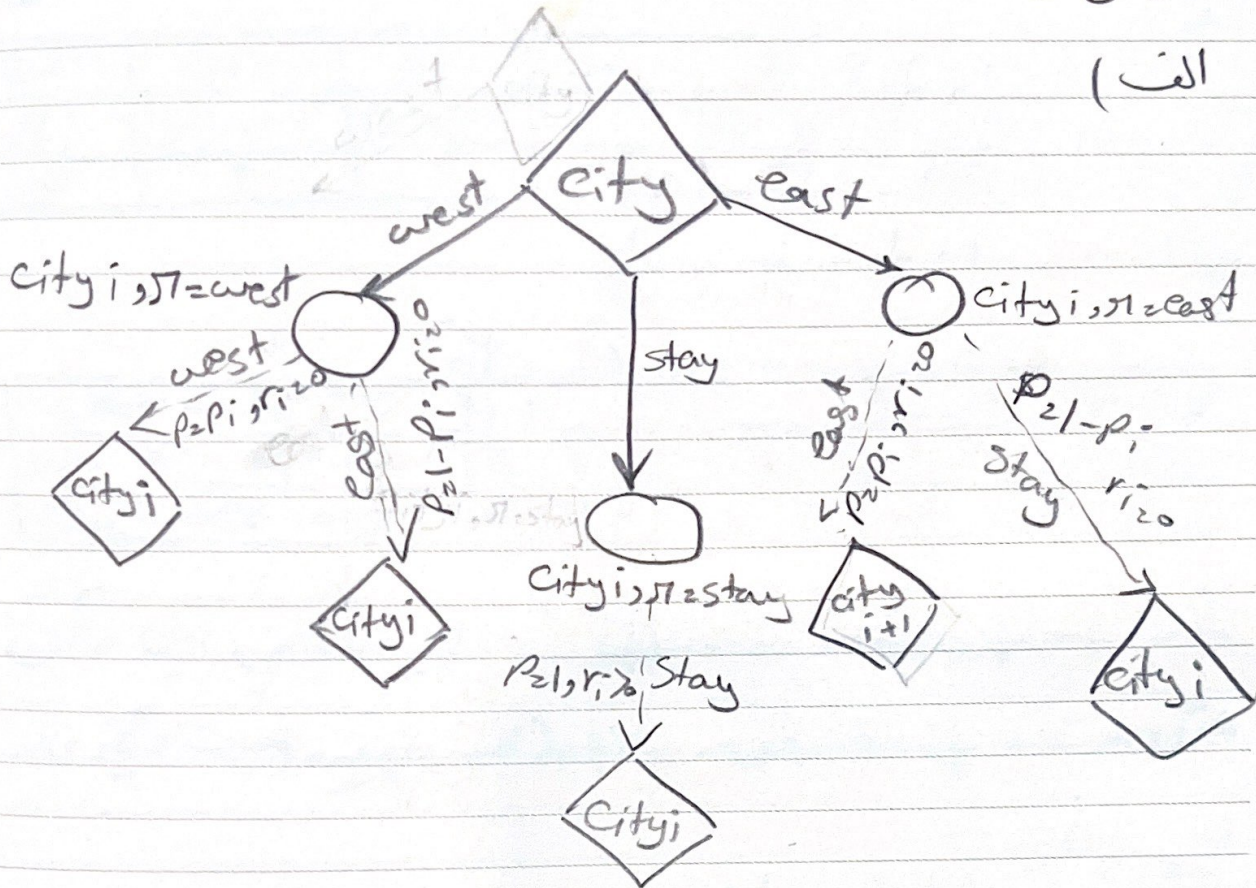 الف)
City
west
east
City i, π=west
City i, π=east
west
P=Pi, ri=0
east
P=1-Pi, ri=0
stay
east
P=Pi, ri=0
P=1-Pi
ri=0
Stay
City i
City i
City i, π=stay
City
i+1
City i
P=1, ri≥0 Stay
City i